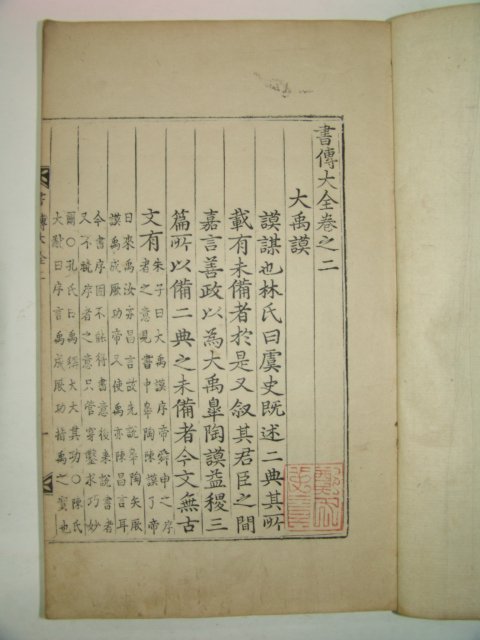 書傳大全卷之二
大禹謨
謨謀也林氏曰虞史既述二典其所
載有未備者於是又叙其君臣之間
嘉言善政以為大禹皐陶謨益稷三
篇所以備二典之未備者今文無古
文有
朱子曰大禹謨序帝舜申之序
者之意見書中皐陶陳謨了帝
曰來禹汝亦昌言故先說皐陶矢厥
謨禹成厥功帝又使禹亦陳昌言耳
今書序固不能得書意後來說書者
又不曉序者之意只管穿鑿求巧妙
爾○孔氏曰禹稱大大其功○陳氏
大猷曰序言禹成厥功指禹之實也